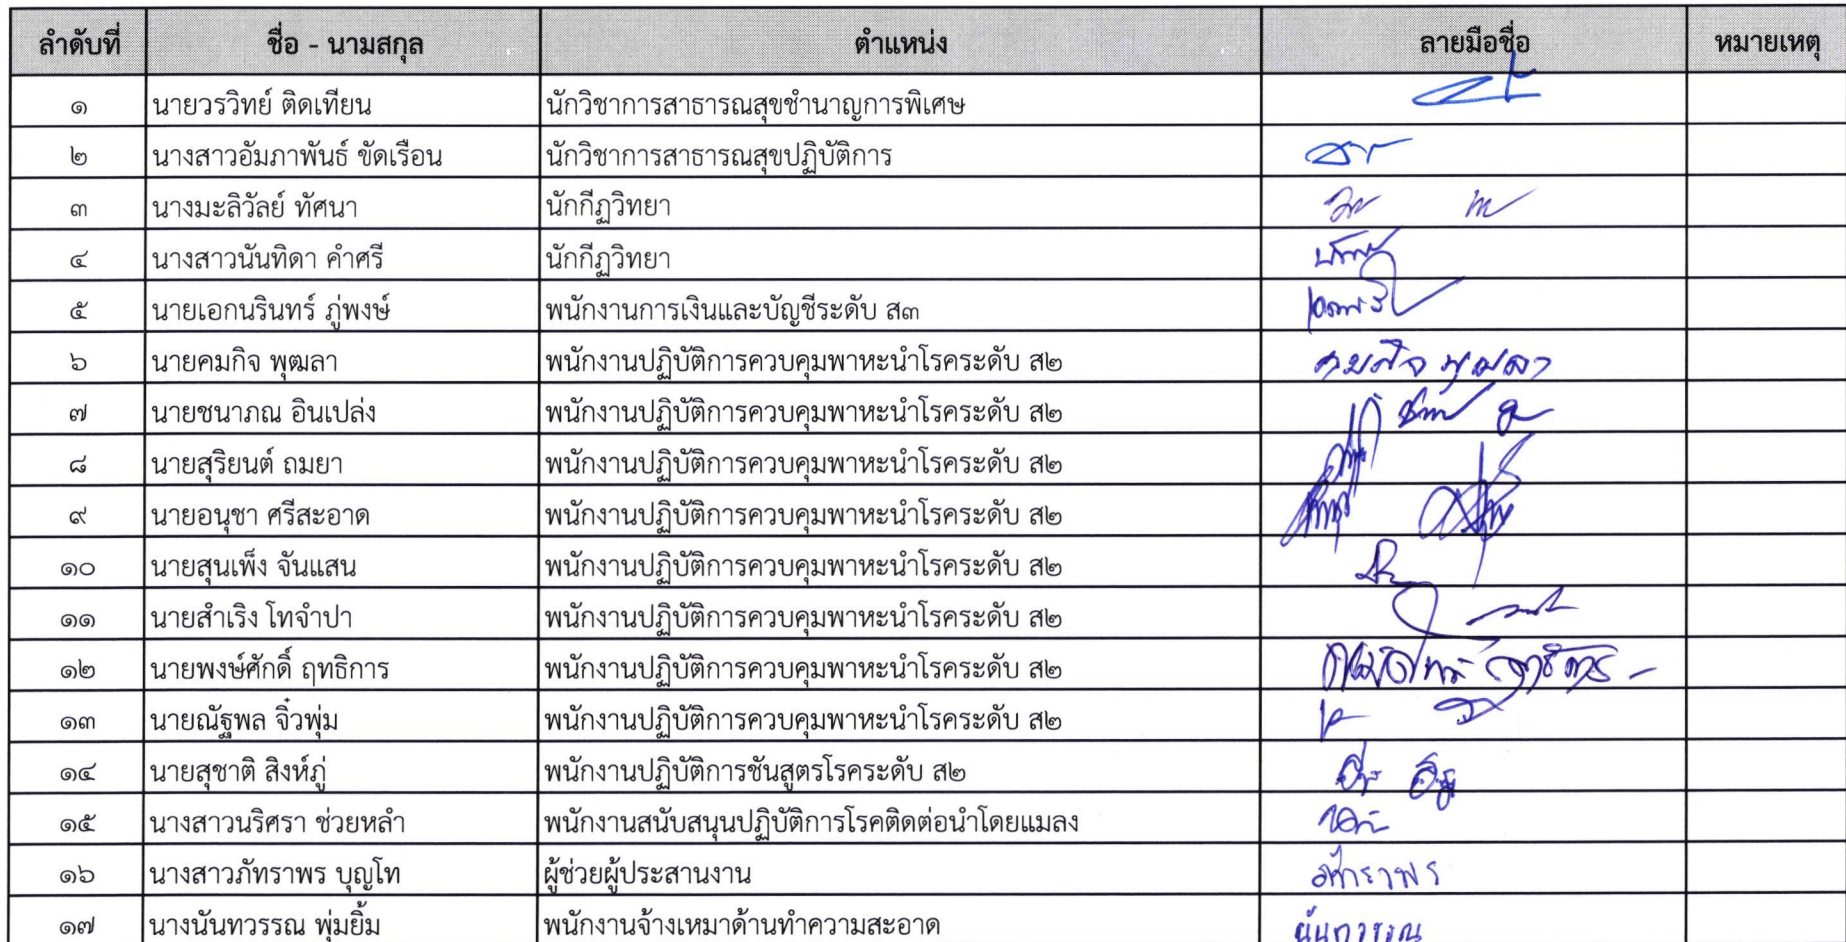 ลำดับที่ ชื่อ - นามสกุล ตำแหน่ง ลายมือชื่อ หมายเหตุ
๑ นายวรวิทย์ ติดเทียน นักวิชาการสาธารณสุขชำนาญการพิเศษ
๒ นางสาวอัมภาพันธ์ ขัดเรือน นักวิชาการสาธารณสุขปฏิบัติการ
๓ นางมะลิวัลย์ ทัศนา นักกีฏวิทยา
๔ นางสาวนันทิดา คำศรี นักกีฏวิทยา
๕ นายเอกนรินทร์ ภู่พงษ์ พนักงานการเงินและบัญชีระดับ ส๓
๖ นายคมกิจ พุฒลา พนักงานปฏิบัติการควบคุมพาหะนำโรคระดับ ส๒ คมกิจ พุฒลา
๗ นายชนาภณ อินเปล่ง พนักงานปฏิบัติการควบคุมพาหะนำโรคระดับ ส๒
๘ นายสุริยนต์ ถมยา พนักงานปฏิบัติการควบคุมพาหะนำโรคระดับ ส๒
๙ นายอนุชา ศรีสะอาด พนักงานปฏิบัติการควบคุมพาหะนำโรคระดับ ส๒
๑๐ นายสุนเพ็ง จันแสน พนักงานปฏิบัติการควบคุมพาหะนำโรคระดับ ส๒
๑๑ นายสำเริง โทจำปา พนักงานปฏิบัติการควบคุมพาหะนำโรคระดับ ส๒
๑๒ นายพงษ์ศักดิ์ ฤทธิการ พนักงานปฏิบัติการควบคุมพาหะนำโรคระดับ ส๒
๑๓ นายณัฐพล จิ๋วพุ่ม พนักงานปฏิบัติการควบคุมพาหะนำโรคระดับ ส๒
๑๔ นายสุชาติ สิงห์ภู่ พนักงานปฏิบัติการชันสูตรโรคระดับ ส๒
๑๕ นางสาวนริศรา ช่วยหลำ พนักงานสนับสนุนปฏิบัติการโรคติดต่อนำโดยแมลง
๑๖ นางสาวภัทราพร บุญโท ผู้ช่วยผู้ประสานงาน ภัทราพร
๑๗ นางนันทวรรณ พุ่มยิ้ม พนักงานจ้างเหมาด้านทำความสะอาด นันทวรรณ